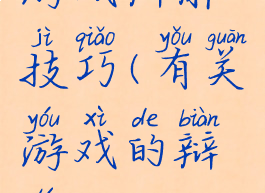 jì qiǎo yǒu guān
技巧(有关
yóu xì de biàn
游戏的辩